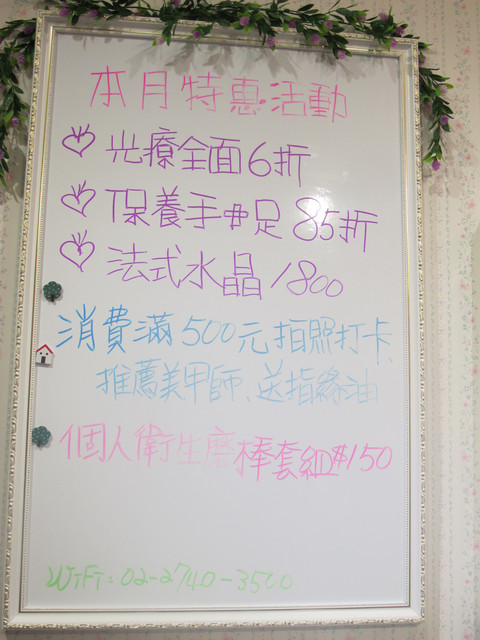 本月特惠活動
光療全面6折
保養手中足 85折
法式水晶 1800
消費滿500元 拍照打卡、
推薦美甲師、送指緣油
個人衛生磨棒套組$150
WIFI: 02-2740-3500